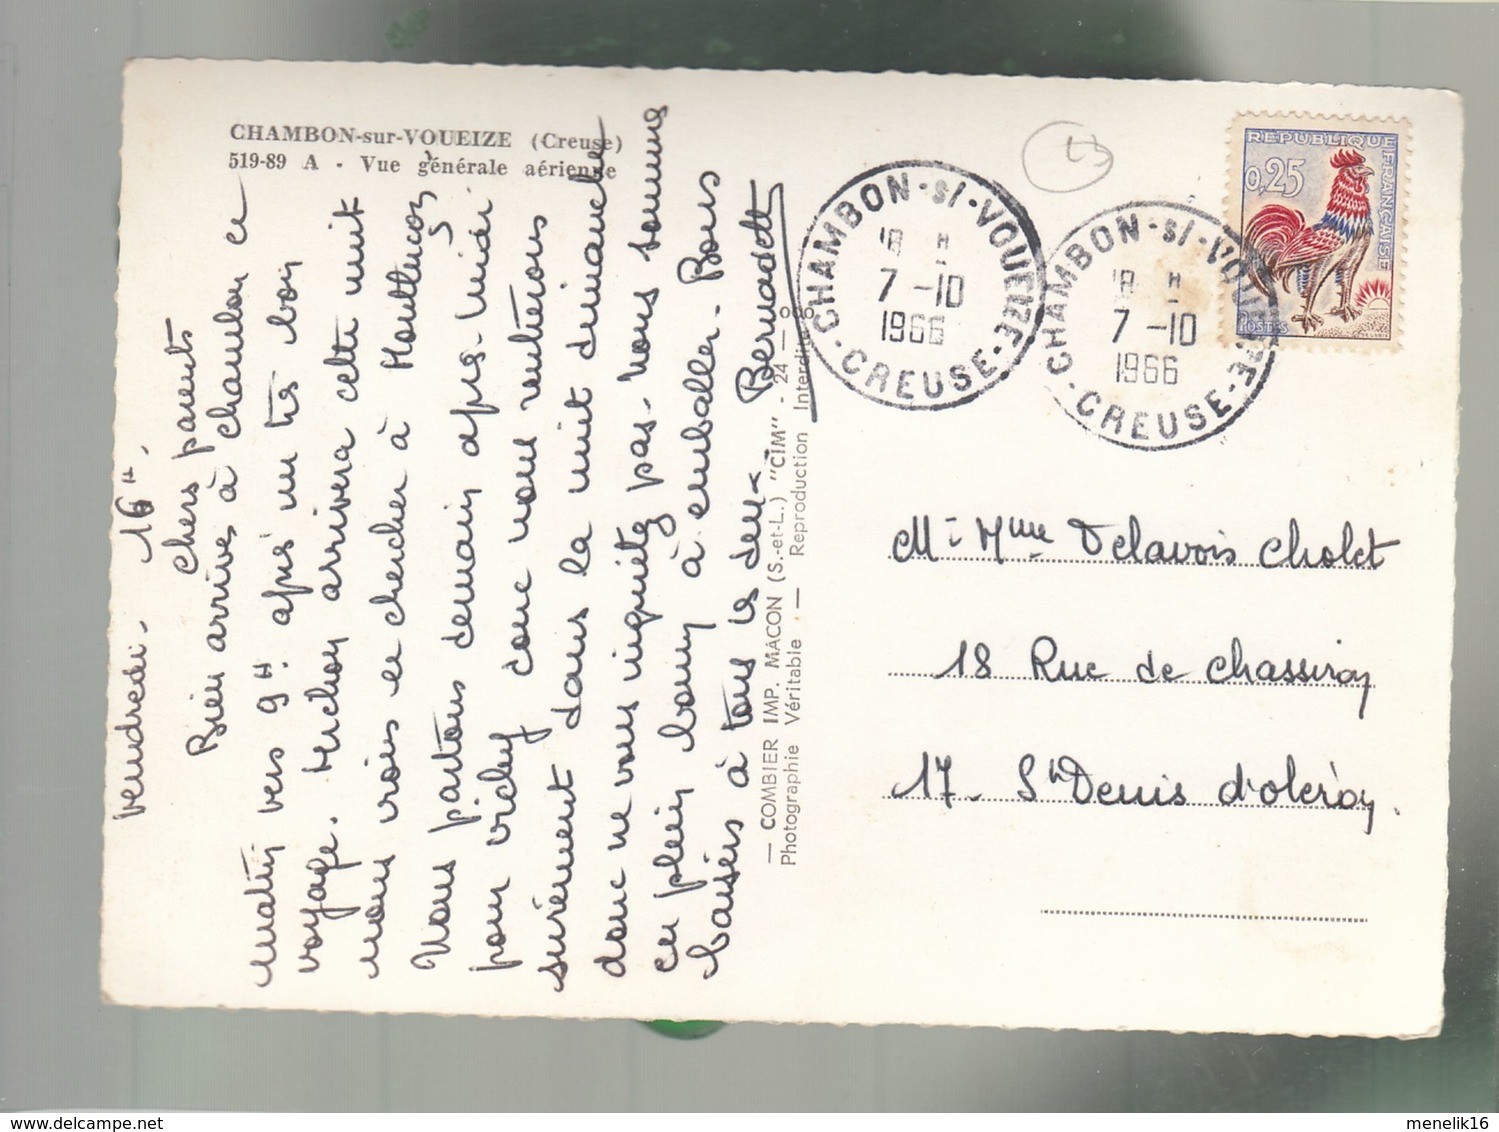 CHAMBON-sur-VOUEIZE (Creuse)
519-89 A - Vue générale aérienne
vendredi - 16H.
Chers parents
Bien arrivés à chambon ce
matin vers 9H. après un très bon
voyage. Michou arrivera cette nuit
nous irons le chercher à Montluçon
Nous partons demain après-midi
pour vichy donc nous rentrerons
sûrement dans la nuit dimanche
donc ne vous inquiétez pas. Nous sommes
en plein à emballer. Bons
baisers à tous les deux. Bernadette
— COMBIER IMP. MACON (S.-et-L.) "CIM" - 24 — 000
Photographie Véritable — Reproduction Interdite
CHAMBON-S/-VOUEIZE
18 H
7-10
1966
CREUSE
CHAMBON-S/-VOUEIZE
18 H
7-10
1966
CREUSE
REPUBLIQUE FRANÇAISE
0,25
POSTES
Mr Mme Delavois Cholet
18 Rue de Chassiron
17. St Denis d'oleron.
delcampe.net
menelik16